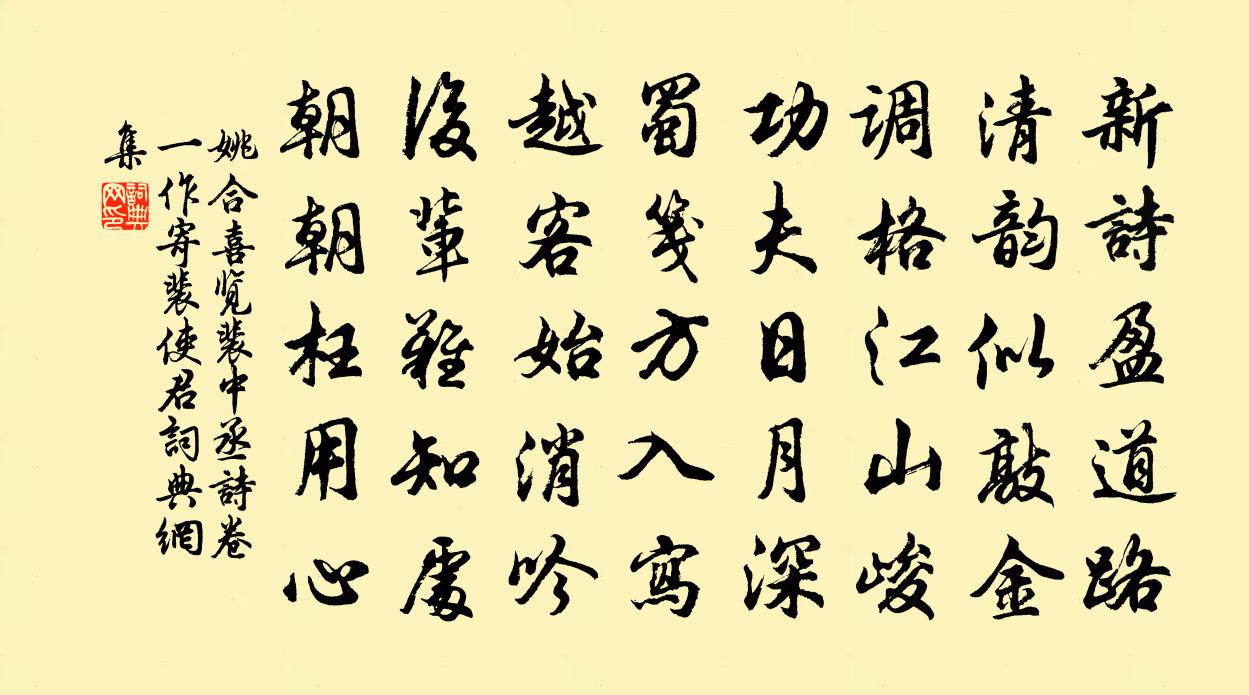 新詩盈道路
清韵似敲金
调格江山峻
功夫日月深
蜀笺方入寫
越客始消吟
後輩難知處
朝朝枉用心
姚合喜览裴中丞詩卷
一作寄裴使君詞典網
集
詞典
网印